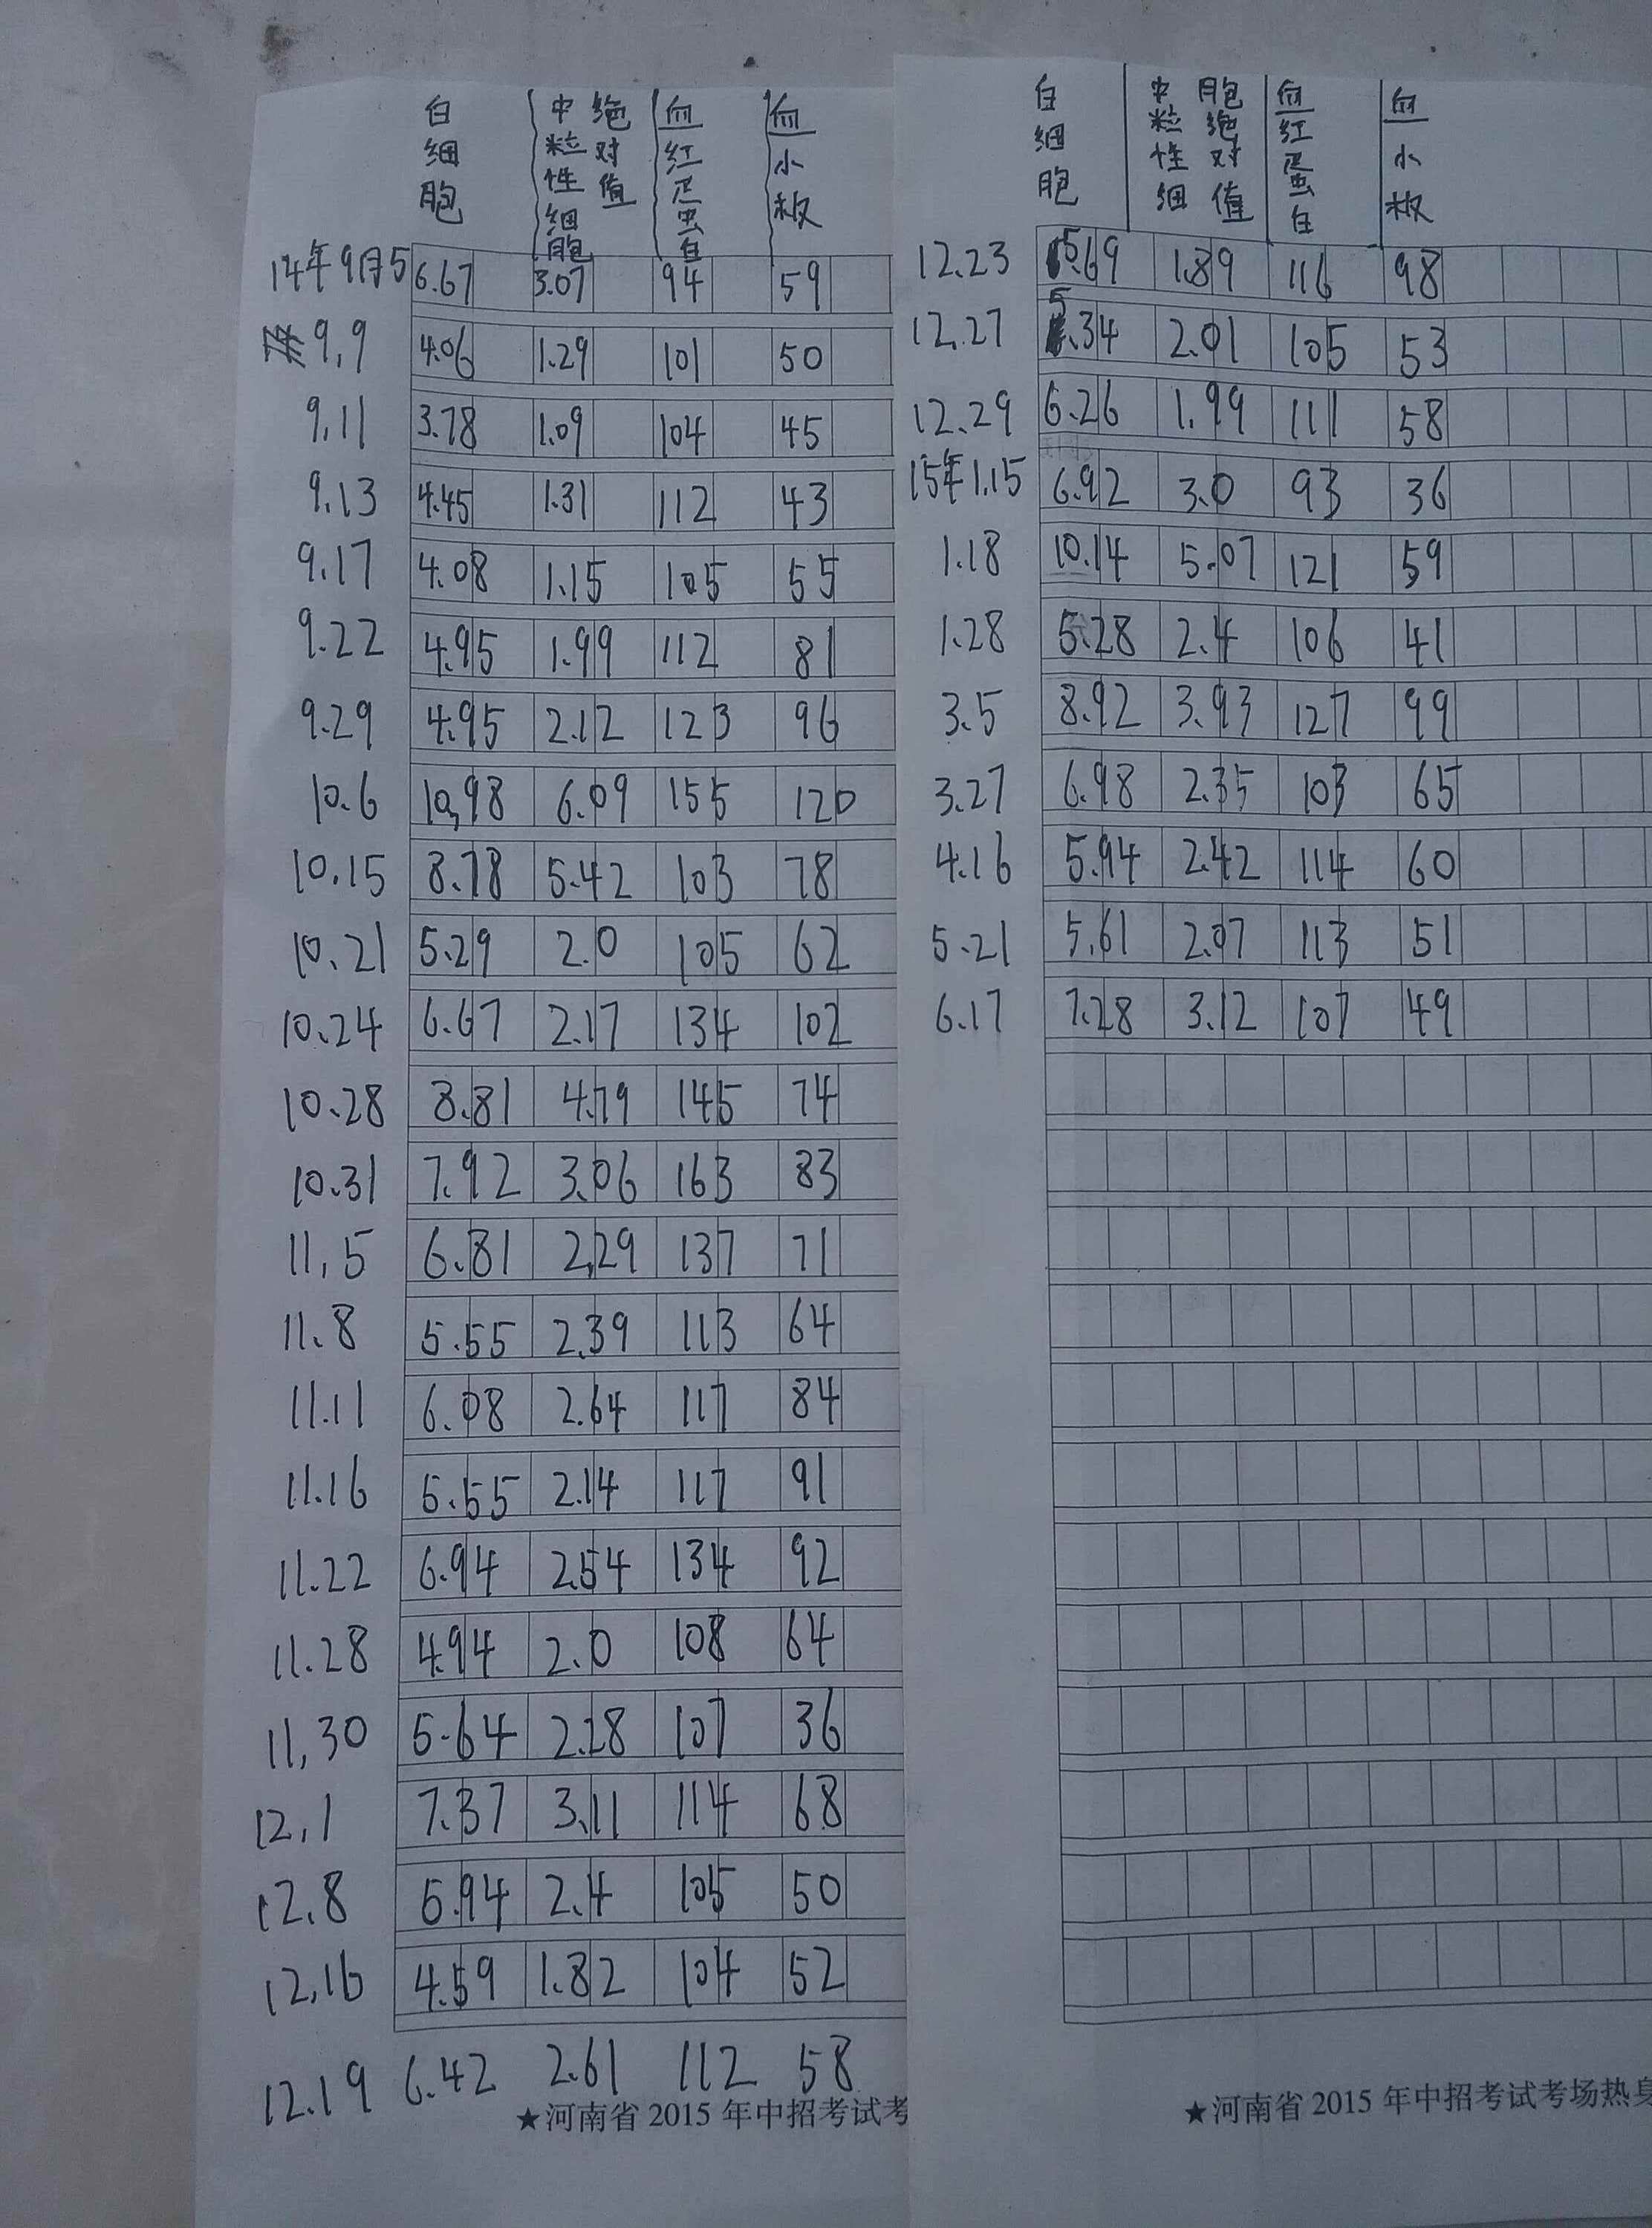 白细胞 中性粒细胞绝对值 血红蛋白 血小板
14年9月5 6.67 3.07 94 59
9,9 4.06 1.29 101 50
9,11 3.78 1.09 104 45
9.13 4.45 1.31 112 43
9.17 4.08 1.15 105 55
9.22 4.95 1.99 112 81
9.29 4.95 2.12 123 96
10.6 10,98 6.09 155 120
10.15 8.78 5.42 103 78
10.21 5.29 2.0 105 62
10.24 6.67 2.17 134 102
10.28 8.81 4.79 145 74
10.31 7.92 3.06 163 83
11,5 6.81 2,29 137 71
11.8 5.55 2.39 113 64
11.11 6.08 2.64 117 84
11.16 5.55 2.14 117 91
11.22 6.94 2.54 134 92
11.28 4.94 2.0 108 64
11,30 5.64 2.28 107 36
12,1 7.37 3.11 114 68
12.8 5.94 2.4 105 50
12.16 4.59 1.82 104 52
12.19 6.42 2.61 112 58
★河南省 2015 年中招考试考
白细胞 中性粒细胞绝对值 血红蛋白 血小板
12.23 5.69 1.89 116 98
12.27 5.34 2.01 105 53
12.29 6.26 1.99 111 58
15年1.15 6.92 3.0 93 36
1.18 10.14 5.07 121 59
1.28 5.28 2.4 106 41
3.5 8.92 3.93 127 99
3.27 6.98 2.35 103 65
4.16 5.94 2.42 114 60
5.21 5.61 2.07 113 51
6.17 7.28 3.12 107 49
★河南省 2015 年中招考试考场热身